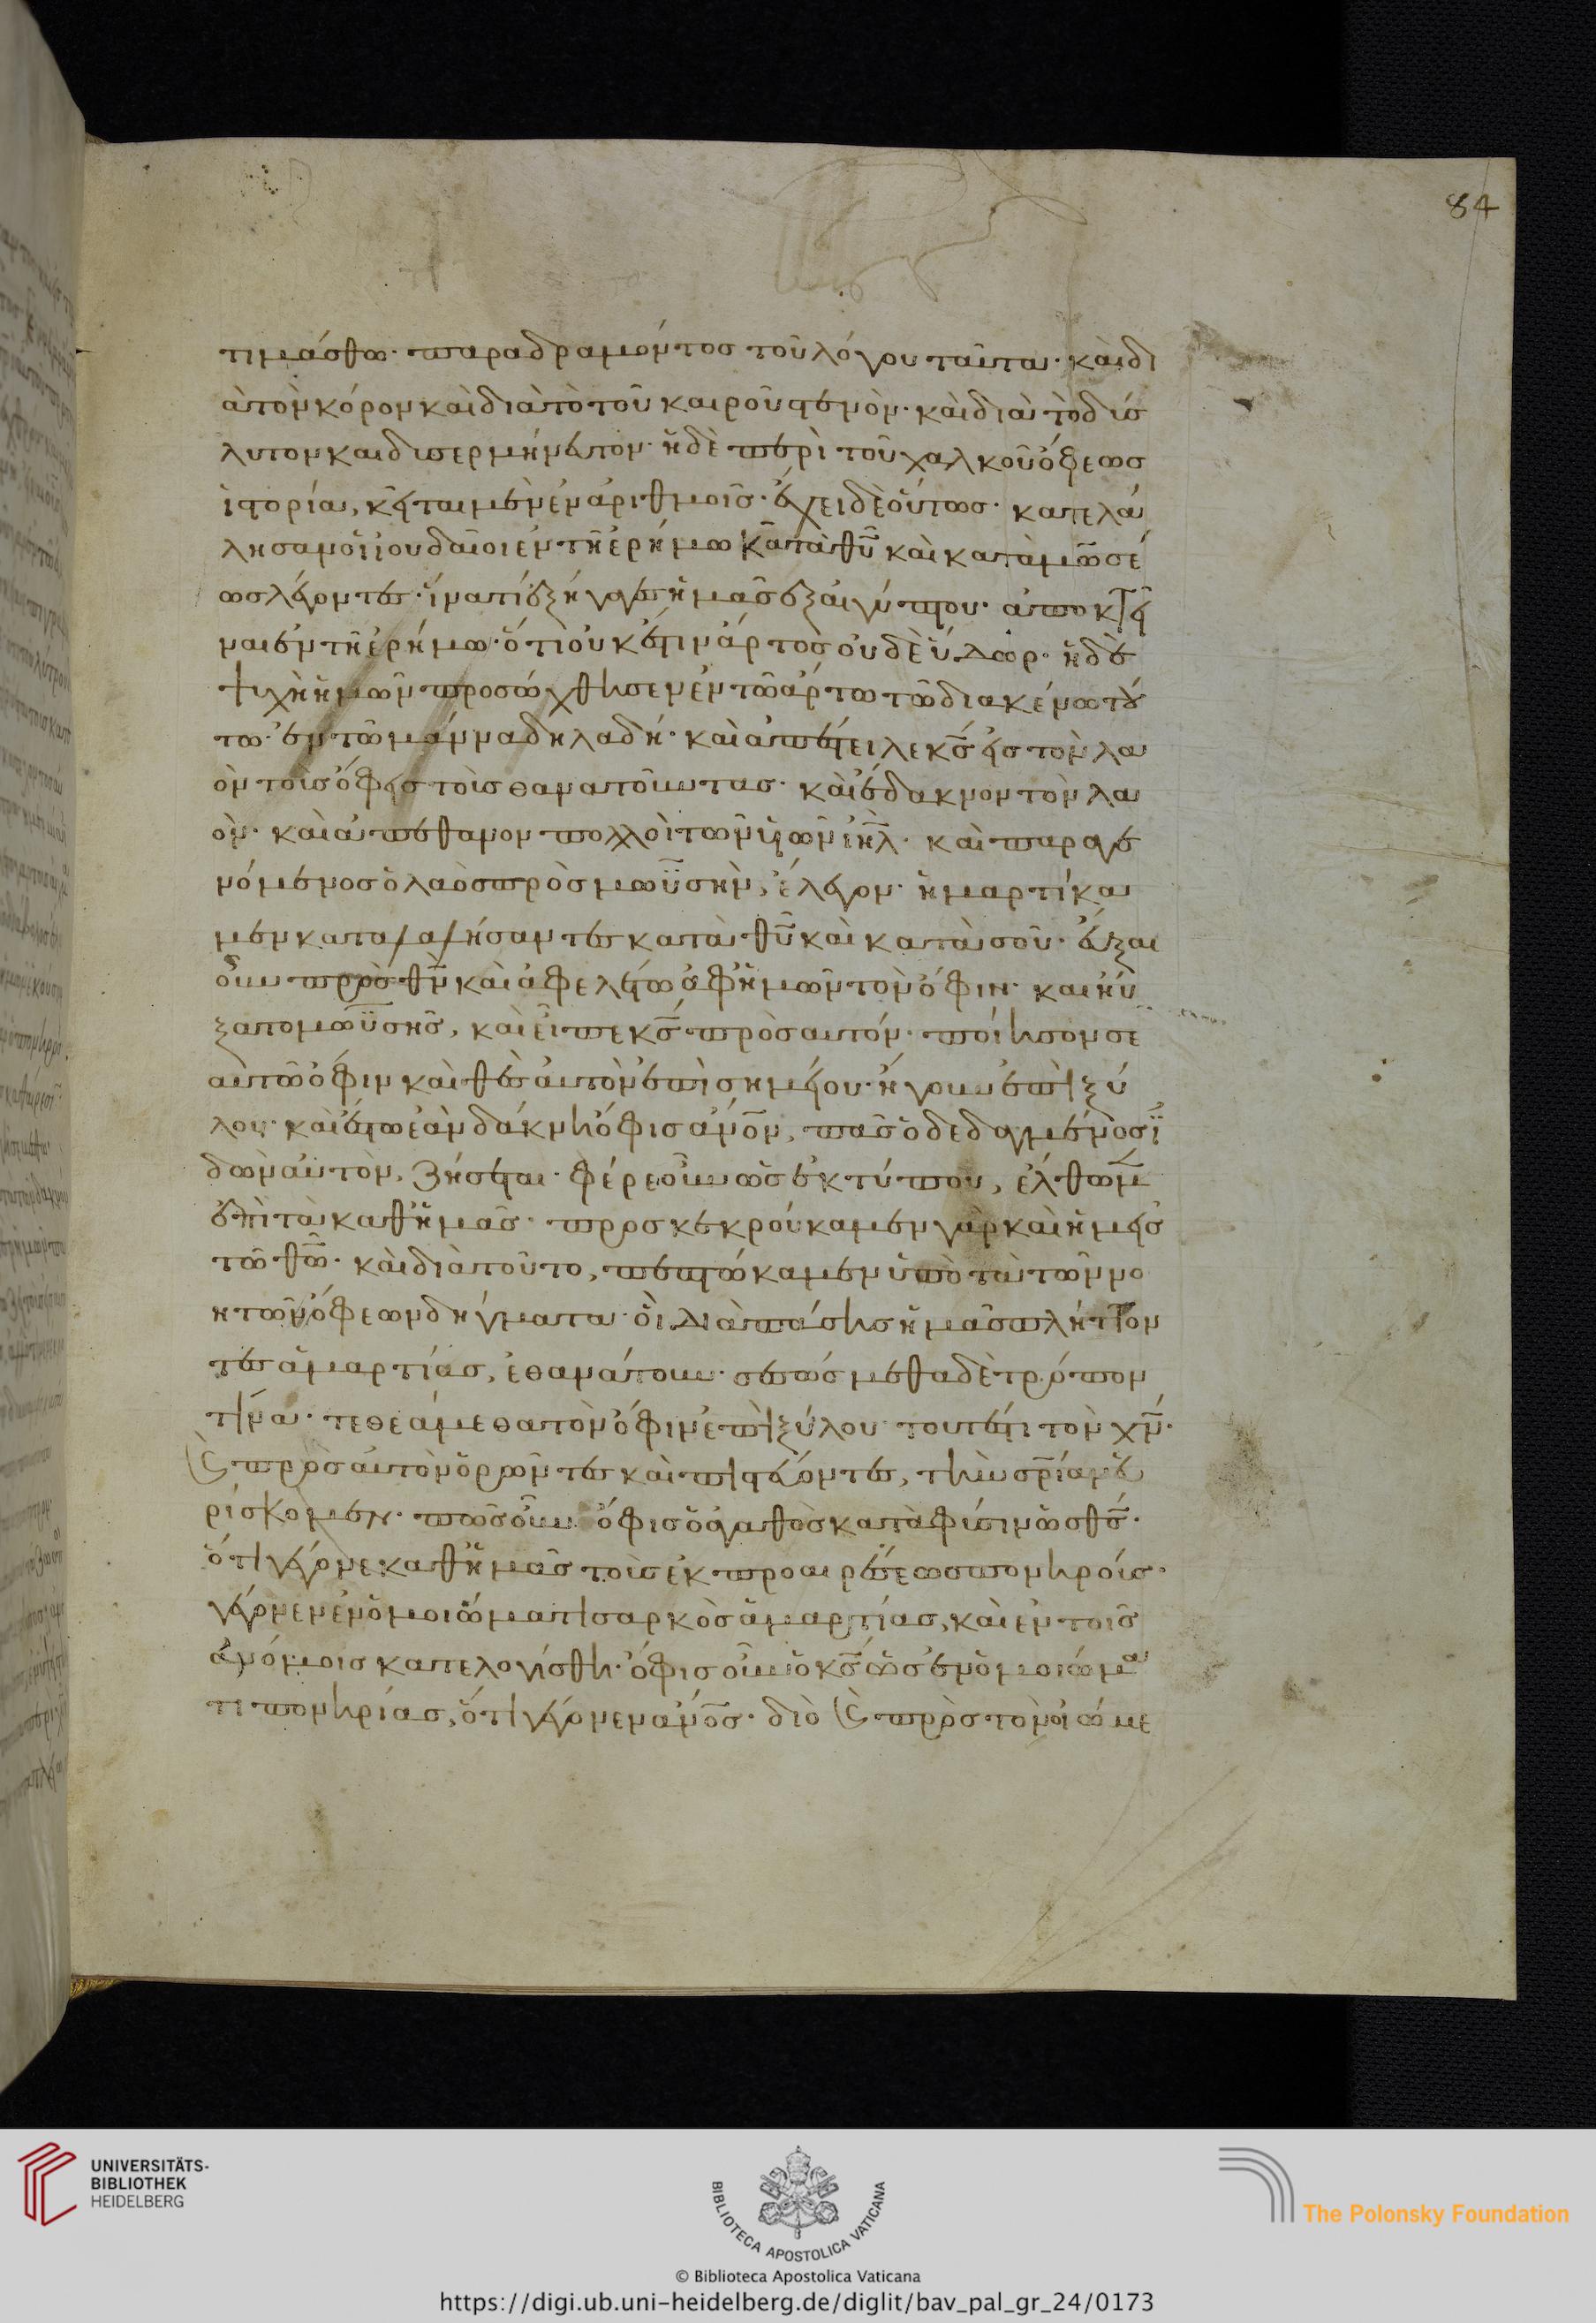 84
τιμάσθω· παραδραμόντος τοῦ λόγου ταῦτα· καὶ δι
ὰ τὸν κόρον καὶ διὰ τὸ τοῦ καιροῦ στενὸν· καὶ διὰ τὸ δύσ
λυτον και δυσερμήνευτον· ἡ δὲ περὶ τοῦ χαλκοῦ ὄφεως
ἱστορία, κεῖται μὲν ἐν ἀριθμοῖς· ἔχει δὲ οὕτως· κατελά
λησαν οἱ ἰουδαῖοι ἐν τῇ ἐρήμω κατὰ θῦ καὶ κατὰ μωσέ
ως λέγοντες· ἵνα τί ἐξήγαγες ἡμᾶς ἐξ αἰγύπτου· ἀποκτεῖ
ναι ἐν τῇ ἐρήμω· ὅτι οὐκ ἔστιν ἄρτος οὐδὲ ὕδωρ· ἡ δὲ
ψυχὴ ἡμῶν προσώχθισεν ἐν τῶ ἄρτω τῶ διακένω τού
τω· ἐν τῶ μάννα δηλαδή· καὶ ἀπέστειλε κς εἰς τὸν λα
ὸν τοὺς ὄφεις τοὺς θανατοῦντας· καὶ ἔδακνον τὸν λα
ὸν· καὶ ἀπέθανον πολλοὶ τῶν υἱῶν ιηλ· καὶ παραγε
νόμενος ὁ λαὸς πρὸς μωϋσῆν, ἔλεγον· ἡμαρτήκα
μεν καταλαλήσαντες κατὰ θυ καὶ κατὰ σοῦ· εὖξαι
οὖν πρὸς θν καὶ ἀφελέτω ἀφ ἡμῶν τὸν ὄφιν· καὶ ηὔ
ξατο μωϋσῆς, καὶ εἶπε κς πρὸς αὐτόν· ποίησον σε
αυτῶ ὄφιν καὶ θὲς αὐτὸν ἐπὶ σημείου· ἤγουν ἐπὶ ξύ
λου· καὶ ἔσται ἐὰν δάκνη ὄφις ἀνον, πᾶς ὁ δεδαγμένος ἰ
δὼν αὐτὸν, ζήσεται· φέρε οὖν ὡς ἐκ τύπου, ἔλθωμεν
ἐπὶ τὰ καθ ἡμᾶς· προσκεκρούκαμεν γὰρ καὶ ἡμεῖς
τῶ θω· καὶ διὰ τοῦτο, πεπτώκαμεν ὑπὸ τὰ τῶν νο
ητῶν ὄφεων δήγματα· οἳ διὰ πάσης ἡμᾶς πλήττον
τες ἁμαρτίας, ἐθανάτουν· σεσώσμεθα δὲ τρόπον
τινα· τεθεάμεθα τὸν ὄφιν ἐπὶ ξύλου τουτέστι τὸν χν·
ὃς πρὸς αὐτὸν ὁρῶντες καὶ πιστεύοντες, τὴν σρίαν εὑ
ρίσκομεν· πῶς οὖν ὄφις ὁ ἀγαθὸς κατὰ φύσιν ὡς θς·
ὅτι γέγονε καθ ἡμᾶς τοὺς ἐκ προαιρέσεως πονηρούς·
γέγονεν ἐν ὁμοιώματι σαρκὸς ἁμαρτίας, καὶ ἐν τοῖς
ἀνόμοις κατελογίσθη· ὄφις οὖν ὁ κς ὡς ἐν ὁμοιώμα
τι πονηρίας, ὅτι γέγονεν ἀνος· διὸ πρὸς τὸν
UNIVERSITÄTS-
BIBLIOTHEK
HEIDELBERG
BIBLIOTECA APOSTOLICA VATICANA
The Polonsky Foundation
© Biblioteca Apostolica Vaticana
https://digi.ub.uni-heidelberg.de/diglit/bav_pal_gr_24/0173